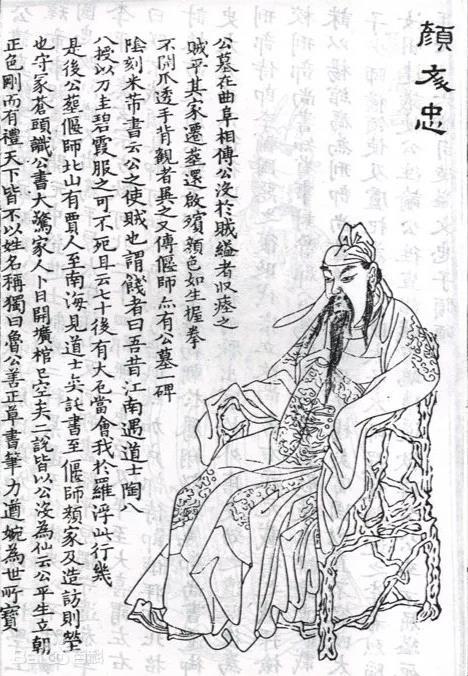 顏文忠
公墓在曲阜相傳公沒於賊縊者收瘞之
賊平其家遷塟還啟殯顏色如生握拳
不開爪透手背觀者異之又傳偃師亦有公墓一碑
陰刻米芾書云公之使賊也謂餞者曰吾昔江南遇道士陶八
八授以刀圭碧霞服之可不死且云七十後有大厄當會我於羅浮此行幾
是後公塟偃師北山有賈人至南海見道士奕託書至偃師顏家及造訪則塋
也守冢蒼頭識公書大驚家人卜日開壙棺已空矣二說皆以公沒為仙云公平生立朝
正色剛而有禮天下皆不以姓名稱獨曰魯公善正草書筆力遒婉為世所寶